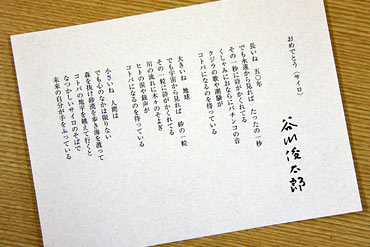 おめでとう〈サイロ〉
谷川俊太郎
長いね 五〇年
でも永遠から見れば たったの一秒
その一秒に詩がかくれてる
くしゃみにおならにパチンコの音
クジラの歌や潮騒が
コトバになるのを待っている
大きいね 地球
でも宇宙から見れば 砂の一粒
その一粒に詩がかくれてる
川の流れに木々のそよぎ
ヒトの歩み 鼓声が
コトバになるのを待っている
小さいね 人間は
でも心のなかは限りない
森を抜け砂漠を歩き海を渡って
コトバの地平を越えて行くと
なつかしいサイロのそばで
未来の自分が手をふっている